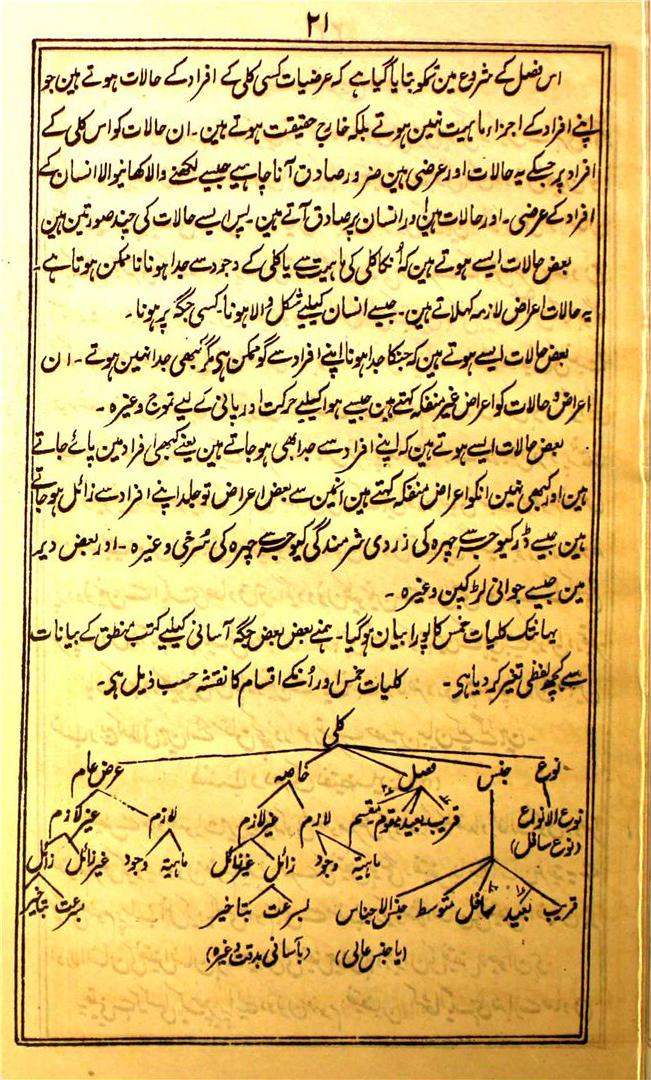 ۲۱
اس فصل کے شروع مین تمکو بتایا گیا ہے کہ عرضیات کسی کلی کے افراد کے حالات ہوتے ہین جو
اپنے افراد کے اجزاء ماہیت نہین ہوتے بلکہ خارج حقیقت ہوتے ہین ۔ ان حالات کو اس کلی کے
افراد پر جسکے یہ حالات اور عرضی ہین ضرور صادق آنا چاہیے جیسے لکھنے والا کھانیوالا انسان کے
افراد کے عرضی ۔ اور حالات ہین اور انسان پر صادق آتے ہین ۔ پس ایسے حالات کی چند صورتین ہین
بعض حالات ایسے ہوتے ہین کہ اُنکا کلی کی ماہیت سے یا کلی کے وجود سے جدا ہونا ناممکن ہوتا ہے ۔
یہ حالات اعراض لازمہ کہلاتے ہین ۔ جیسے انسان کیلیے شکل والا ہونا ۔ کسی جگہ پر ہونا ۔
بعض حالات ایسے ہوتے ہین کہ جنکا جدا ہونا اپنے افراد سے گو ممکن ہی مگر کبھی جدا نہین ہوتے ۔ ان
اعراض و حالات کو اعراض غیر منفکہ کہتے ہین جیسے ہوا کیلیے حرکت اور پانی کے لیے تموج وغیرہ ۔
بعض حالات ایسے ہوتے ہین کہ اپنے افراد سے جدا بھی ہو جاتے ہین یعنے کبھی افراد مین پائے جاتے
ہین اور کبھی نہین انکو اعراض منفکہ کہتے ہین انمین سے بعض اعراض تو جلد اپنے افراد سے زائل ہو جاتے
ہین جیسے ڈر کیوجہ سے چہرہ کی زردی شرمندگی کیوجہ سے چہرہ کی سُرخی وغیرہ ۔ اور بعض دیر
مین جیسے جوانی لڑکپن وغیرہ ۔
یہانتک کلیات خمس کا پورا بیان ہو گیا ۔ ہمنے بعض بعض جگہ آسانی کیلیے کتب منطق کے بیانات
سے کچھ لفظی تغیر کر دیا ہی ۔ کلیات خمس اور اُنکے اقسام کا نقشہ حسب ذیل ہی ۔
کلی
نوع جنس فصل خاصہ عرض عام
نوع الانواع قریب بعید مقوم مقسم لازم غیر لازم لازم غیر لازم
(نوع سافل) ماہیۃ وجود زائل غیر زائل ماہیۃ وجود غیر زائل زائل
قریب بعید سافل متوسط جنس الاجناس بسرعت بتاخیر بسرعت بتاخیر
(یا جنس عالی) (بآسانی بدقت وغیرہ)